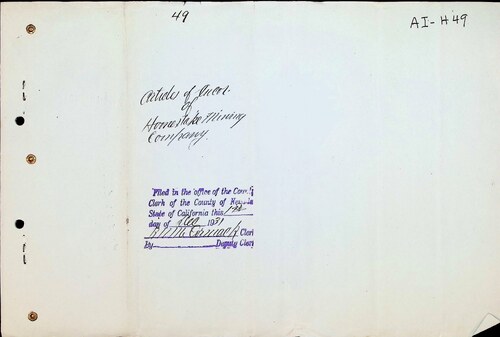 49
AI-H49
Articles of Incor.
of
Homestake Mining
Company.
Filed in the office of the County
Clerk of the County of Nevada
State of California this
day of 1931
R N McCormack Clerk
By Deputy Clerk